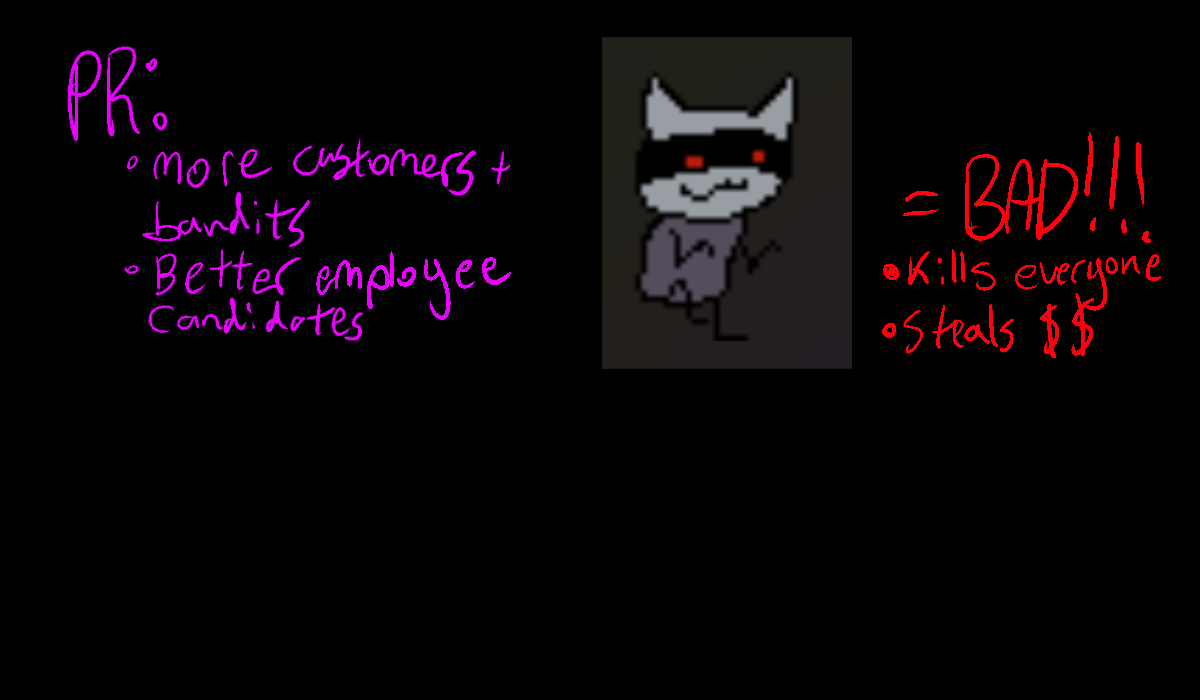 PR:
• more customers +
bandits
• Better employee
candidates
= BAD!!!
• Kills everyone
• Steals $$